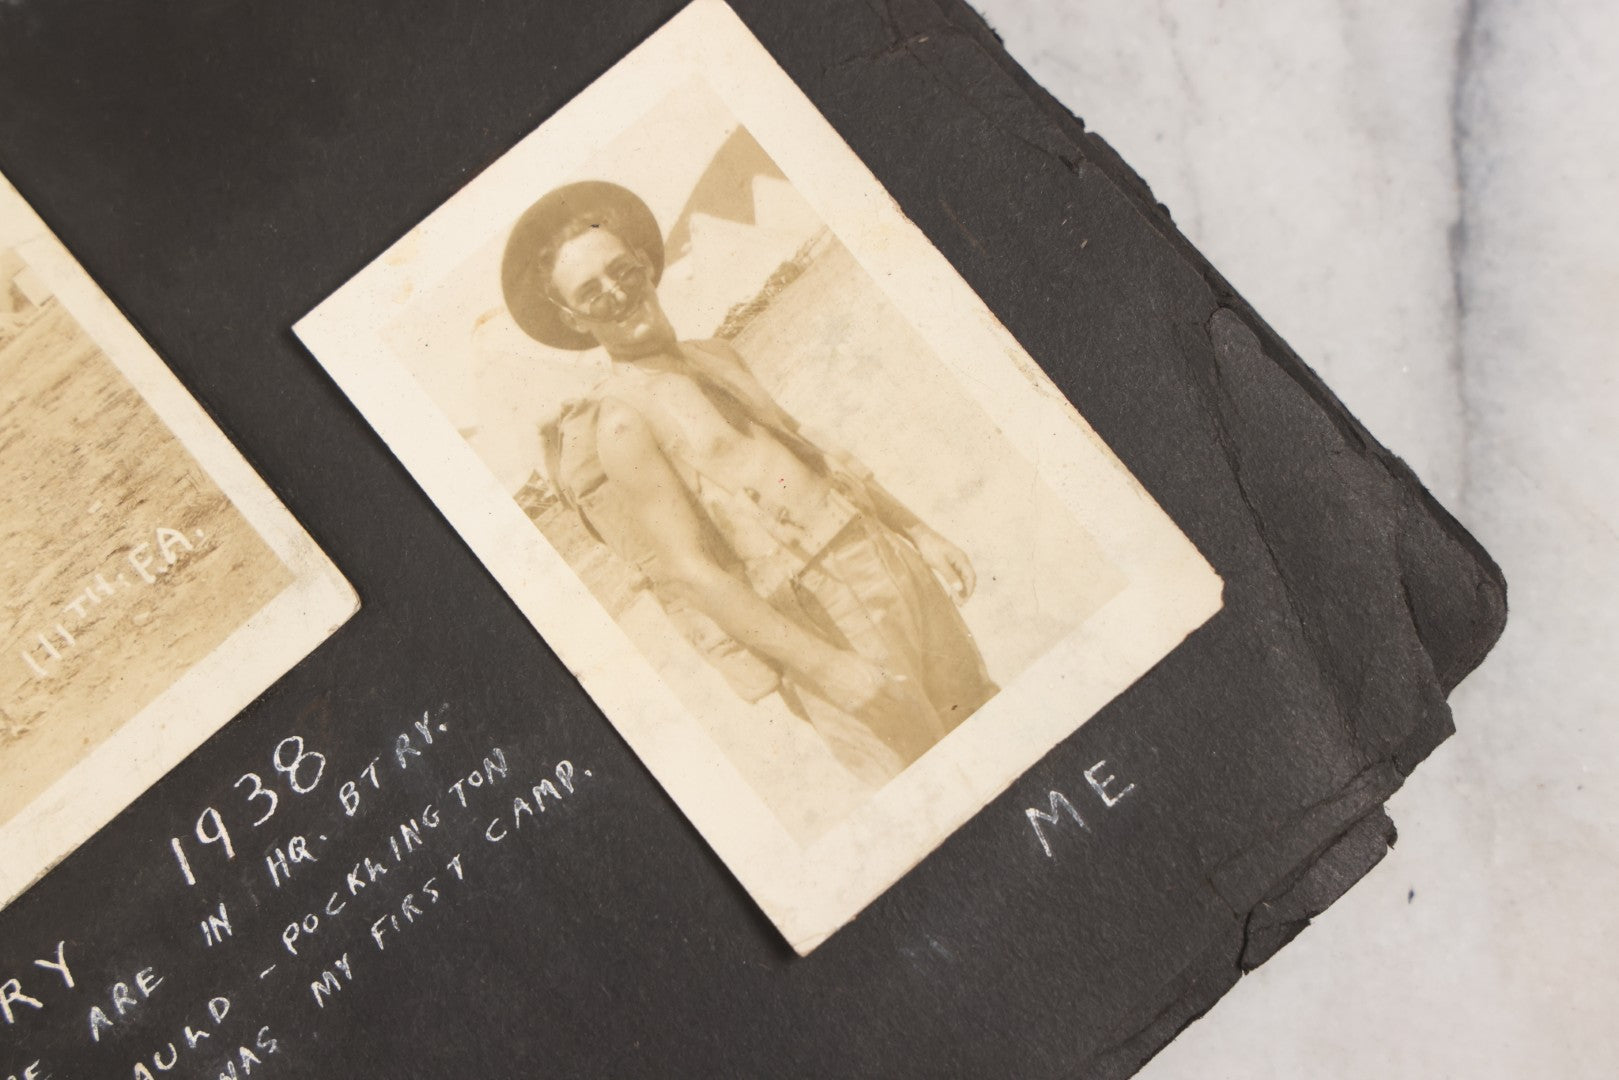 11TH. F.A.
1938
RY
ARE IN HQ. BTRY.
AULD - POCKLINGTON
WAS MY FIRST CAMP.
ME